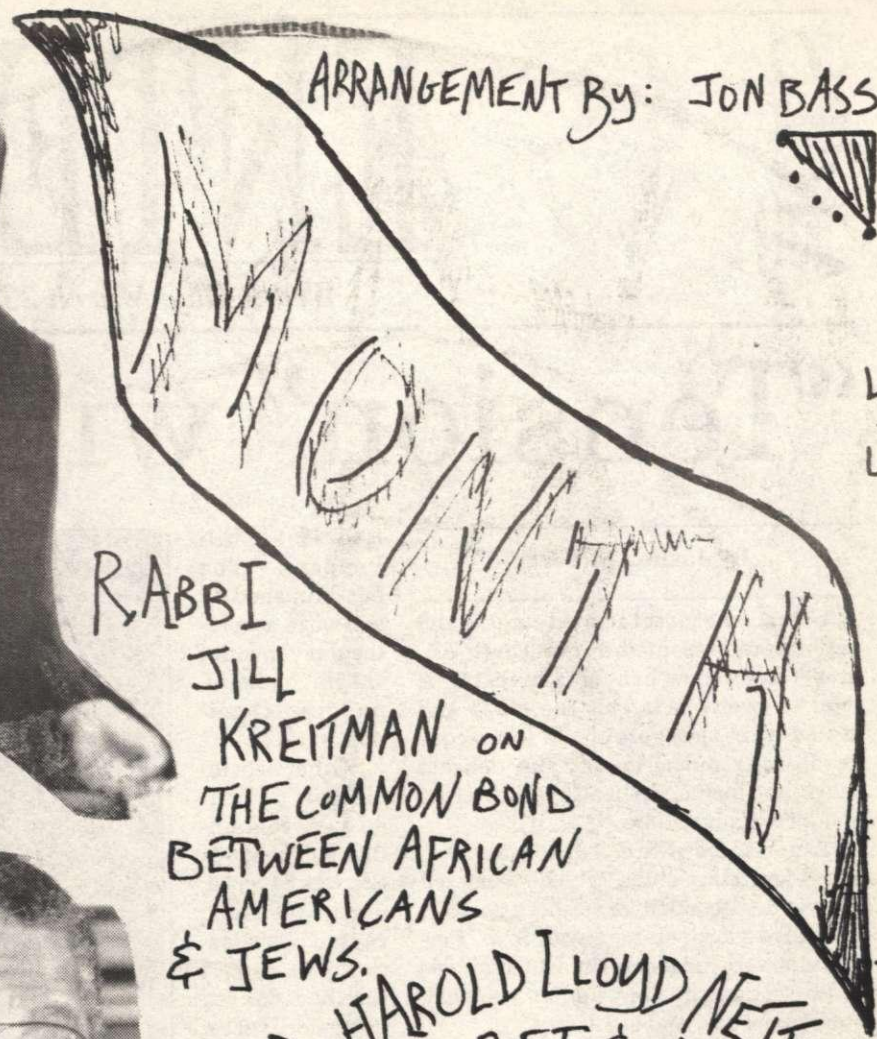 ARRANGEMENT By: JON BASS
MONTH
RABBI
JILL
KREITMAN ON
THE COMMON BOND
BETWEEN AFRICAN
AMERICANS
& JEWS.
HAROLD LLOYD